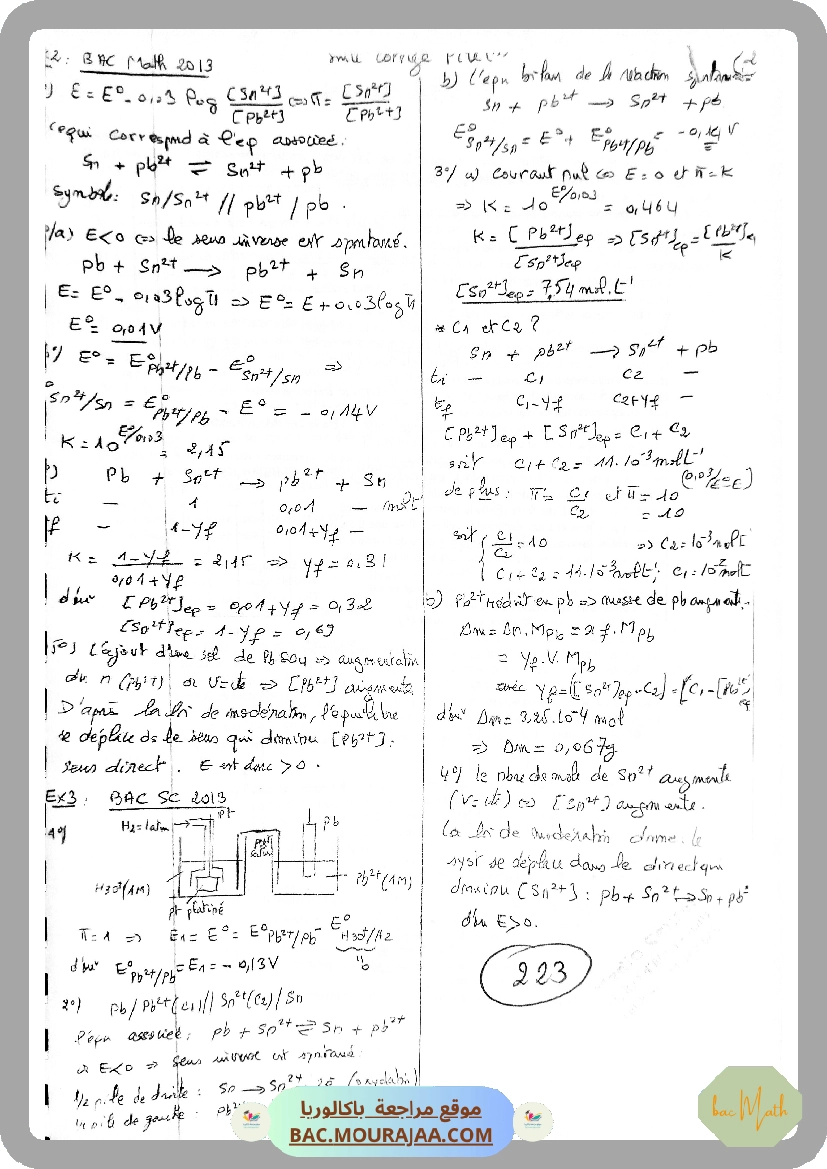 2: BAC Math 2013
) E = E⁰ - 0,03 log [Sn²⁺]/[Pb²⁺] ⇔ π = [Sn²⁺]/[Pb²⁺]
cequi correspond à l'eq associée:
Sn + pb²⁺ ⇌ Sn²⁺ + pb
symbole: Sn/Sn²⁺ // pb²⁺ / pb .
/a) E<0 ⇔ le sens inverse est spontané.
pb + Sn²⁺ → pb²⁺ + Sn
E = E⁰ - 0,03 log π ⇒ E⁰ = E + 0,03 log π
E⁰ = 0,01V
E⁰ = E⁰Pb²⁺/Pb - E⁰Sn²⁺/Sn ⇒
⁰Sn²⁺/Sn = E⁰Pb²⁺/Pb - E⁰ = - 0,14V
K = 10^E⁰/0,03 = 2,15
) Pb + Sn²⁺ → pb²⁺ + Sn
ti - 1 0,01 -
f - 1-yf 0,01+yf -
K = 1-yf/0,01+yf = 2,15 ⇒ yf = 0,31
d'où [Pb²⁺]eq = 0,01+yf = 0,32
[Sn²⁺]eq = 1-yf = 0,69
5o) L'ajout d'une sol de PbSO4 ⇒ augmentation
du n(Pb²⁺) or V=cte ⇒ [Pb²⁺] augmente
D'après la loi de modération, l'équilibre
se déplace ds le sens qui diminue [Pb²⁺]:
sens direct. E est donc >0.
EX3: BAC SC 2013
1°)
H2=1atm
pt
pb
H3O⁺(1M)
Pb²⁺(1M)
pt platiné
π=1 ⇒ E1 = E⁰ = E⁰Pb²⁺/Pb - E⁰H3O⁺/H2
0
d'où E⁰Pb²⁺/Pb = E1 = - 0,13V
2°) Pb/Pb²⁺(C1)//Sn²⁺(C2)/Sn
l'eqn associée: pb + Sn²⁺ ⇌ Sn + pb²⁺
or E<0 ⇒ sens inverse est spontané.
1/2 pile de droite: Sn → Sn²⁺
de gauche: pb²⁺
b) l'eqn bilan de la réaction spontanée
Sn + pb²⁺ → Sn²⁺ + pb
E⁰Sn²⁺/Sn = E⁰ + E⁰Pb²⁺/Pb = - 0,14 V
3°/ a) courant nul ⇔ E=0 et π=K
⇒ K = 10^E⁰/0,03 = 0,464
K = [Pb²⁺]eq/[Sn²⁺]eq ⇒ [Sn²⁺]eq = [Pb²⁺]/K
[Sn²⁺]eq = 7,54 mol.L⁻¹
* C1 et C2 ?
Sn + pb²⁺ → Sn²⁺ + pb
ti - C1 C2 -
tf C1-yf C2+yf -
[Pb²⁺]eq + [Sn²⁺]eq = C1 + C2
soit C1+C2 = 11.10⁻³molL⁻¹
de plus: π = C1/C2 et π = 10
= 10
soit { C1/C2 = 10 ⇒ C2=10⁻³mol
C1+C2 = 11.10⁻³molL⁻¹; C1=10⁻²molL
b) Pb²⁺ réduit en pb ⇒ masse de pb augmente.
Δm = Δn.MPb = xf.MPb
= yf.V.MPb
avec yf=([Sn²⁺]eq-C2)=(C1-[Pb²⁺]eq
d'où Δn = 3,25.10⁻4 mol
⇒ Δm = 0,067g
4°) le nbre de mole de Sn²⁺ augmente
(V=cte) ⇔ [Sn²⁺] augmente.
la loi de modération donne. le
syst se déplace dans le direct qui
diminue [Sn²⁺]: pb + Sn²⁺ → Sn + pb²
d'où E>0.
223
موقع مراجعة باكالوريا
BAC.MOURAJAA.COM
bac Math